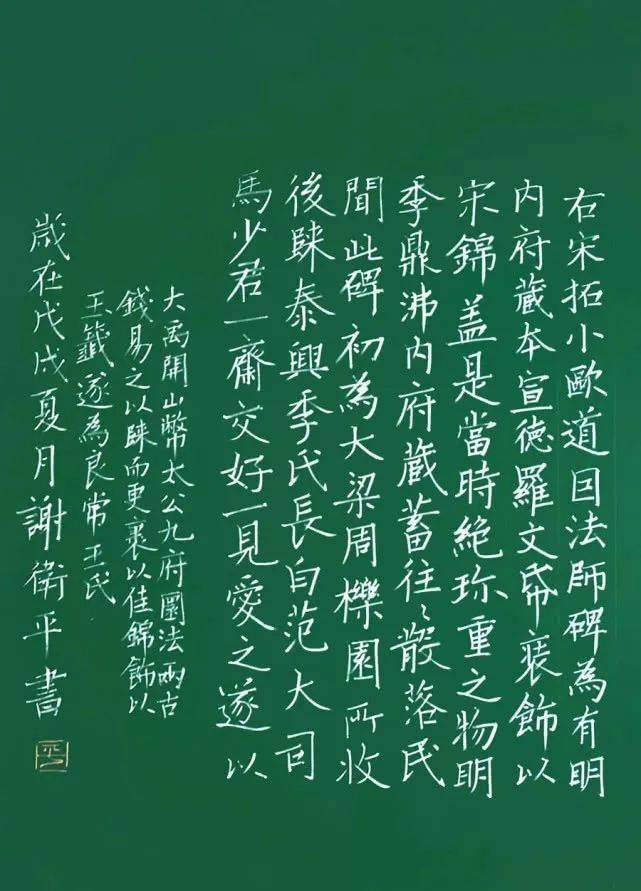 右宋拓小歐道因法師碑為有明
内府藏本宣徳羅文帋裝飾以
宋錦盖是當時絶珎重之物明
季鼎沸内府蔵蓄往〻散落民
聞此碑初為大梁周櫟園所收
後歸泰興季氏長白范大司
馬少君一齋交好一見愛之遂以
大禹開山幣太公九府圜法兩古
錢易之以歸而更裹以佳錦飾以
玉籤遂為良常王氏
歲在戊戌夏月謝衛平書
平